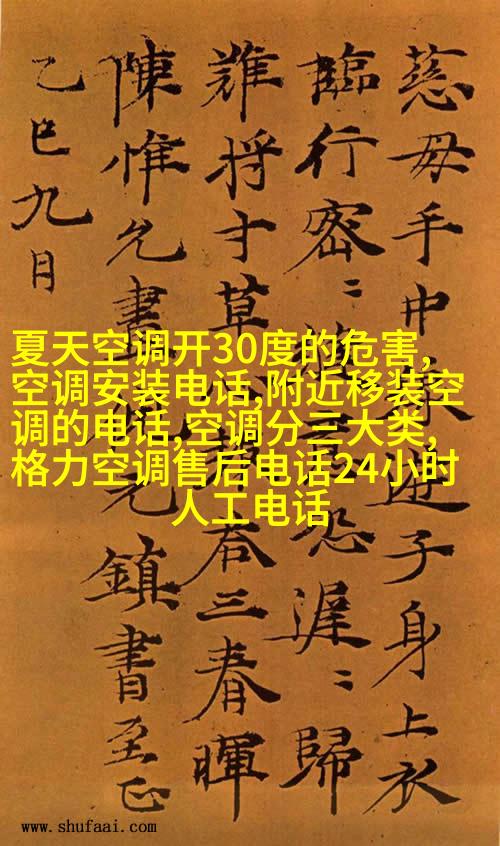 慈母手中線遊子身上衣
臨行密〻縫意恐遲〻歸
難將寸草心報荅三春暉
陳惟允書元鎮書至正
乙巳九月
夏天空调开30度的危害,
空调安装电话,附近移装空
调的电话,空调分三大类,
格力空调售后电话24小时
人工电话
www.shufaai.com